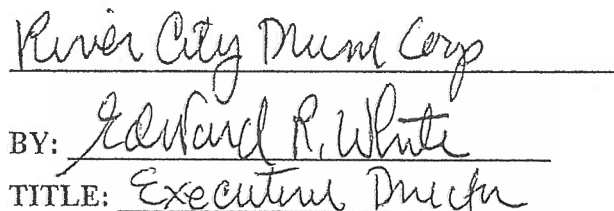 River City Drum Corp
BY: Edward R. White
TITLE: Executive Director